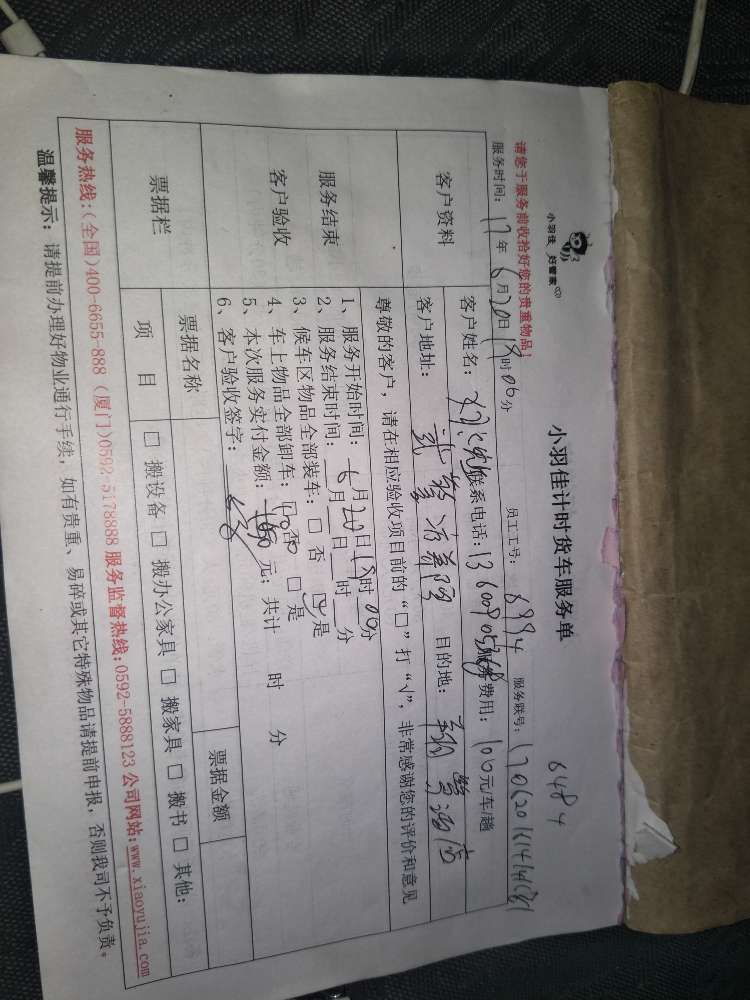 小羽佳 好管家
小羽佳计时货车服务单
6484
请您于服务前收拾好您的贵重物品！
服务时间：17年6月20日18时06分 员工工号：6994 服务账号：
客户资料
客户姓名： 联系电话： 服务费用：100元/车趟
客户地址： 目的地：
服务结束
客户验收
尊敬的客户，请在相应验收项目前的“□”打“√”，非常感谢您的评价和意见
1、服务开始时间：6月20日18时00分
2、服务结束时间：__月__日__时__分
3、候车区物品全部装车：□否 ☑是
4、车上物品全部卸车：□否 □是
5、本次服务实付金额： 元；共计 时 分
6、客户验收签字：
票据栏
票据名称
票据金额
项 目
□ 搬设备 □ 搬办公家具 □ 搬家具 □ 搬书 □ 其他：
服务热线：(全国)400-6655-888 (厦门)0592-5178888 服务监督热线：0592-5888123 公司网站：www.xiaoyujia.com
温馨提示：请提前办理好物业通行手续，如有贵重、易碎或其它特殊物品请提前申报，否则我司不予负责。